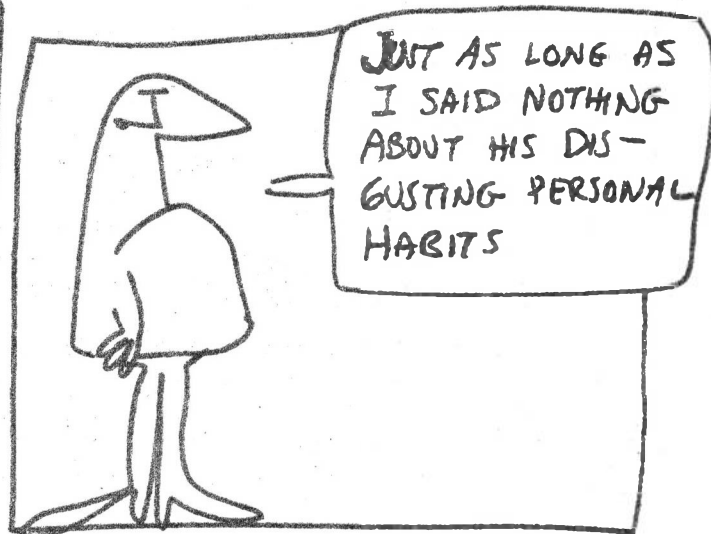 JUST AS LONG AS
I SAID NOTHING
ABOUT HIS DIS-
GUSTING PERSONAL
HABITS